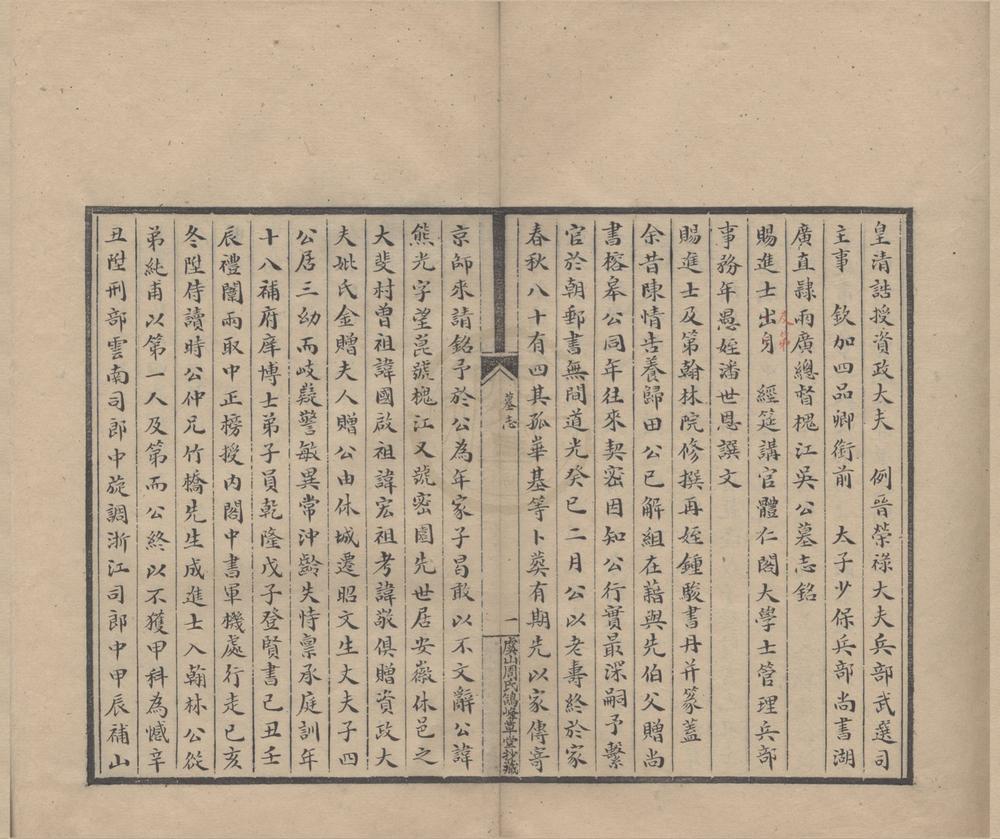 皇清誥授資政大夫　例晉榮祿大夫兵部武選司
主事　欽加四品卿銜前　太子少保兵部尚書湖
廣直隸兩廣總督槐江吳公墓志銘
賜進士出身　經筵講官體仁閣大學士管理兵部
及第
事務年愚姪潘世恩譔文
賜進士及第翰林院修撰再姪鍾駿書丹并篆蓋
余昔陳情告養歸田公已解組在藉與先伯父贈尚
書榕皋公同年往來契密因知公行實最深嗣予繫
官於朝郵書無間道光癸巳二月公以老壽終於家
春秋八十有四其孤華基等卜葬有期先以家傳寄
墓志
一
虞山周氏鴿峰草堂鈔藏
京師來請銘予於公為年家子曷敢以不文辭公諱
熊光字望崑號槐江又號密園先世居安徽休邑之
大斐村曾祖諱國啟祖諱宏祖考諱敬俱贈資政大
夫妣氏金贈夫人贈公由休城遷昭文生丈夫子四
公居三幼而岐嶷警敏異常沖齡失恃稟承庭訓年
十八補府庠博士弟子員乾隆戊子登賢書己丑壬
辰禮闈兩取中正榜授內閣中書軍機處行走己亥
冬陞侍讀時公仲兄竹橋先生成進士入翰林公從
弟純甫以第一人及第而公終以不獲甲科為憾辛
丑陞刑部雲南司郎中旋調浙江司郎中甲辰補山